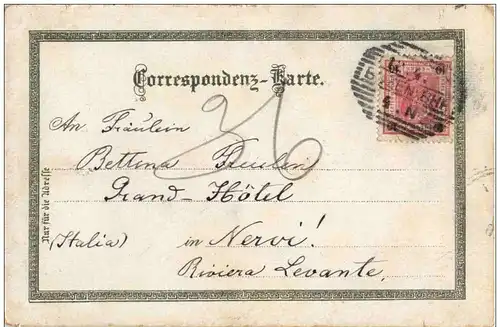 Correspondenz-Karte.
36
An Fräulein
Bettina
Grand-Hôtel
(Italia) in Nervi!
Riviera Levante.
Nur für die Adresse